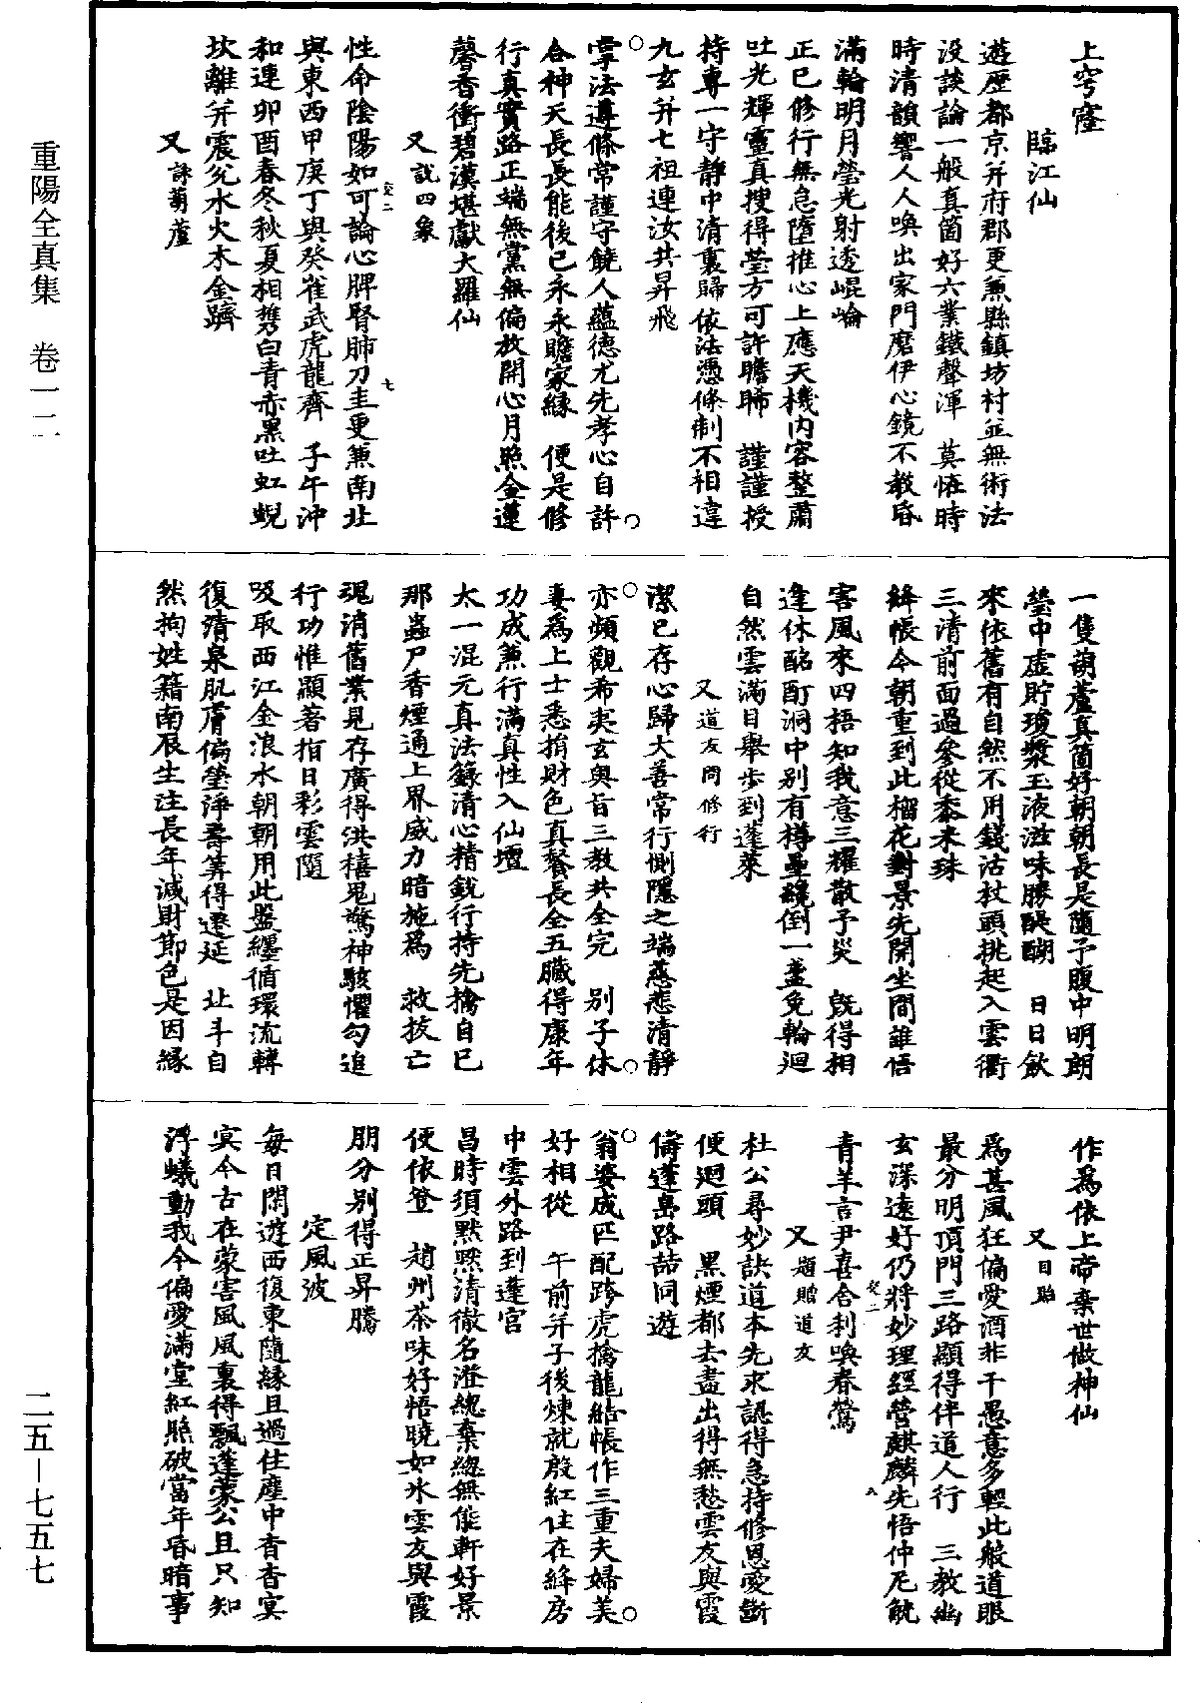 重陽全真集　卷一二
二五—七五七
上穹窿
臨江仙
遊歷都京并府郡更兼縣鎮坊村並無術法
没談論一般真箇好六業鐵聲渾　莫恠時
時清韻響人人喚出家門磨伊心鏡不教昏
滿輪明月瑩光射透崐崘
正已修行無怠墮推心上應天機内容整肅
吐光輝靈真搜得瑩方可許瞻晞　謹謹授
持專一守靜中清裏歸依法憑條制不相違
九玄并七祖連汝共昇飛
掌法遵條常謹守饒人蘊德尤先孝心自許
合神天長長能後已永永瞻家緣　便是修
行真實路正端無黨無偏放開心月照金蓮
馨香衝碧漢堪獻大羅仙
又說四象
性命陰陽如可論心脾腎肺刀圭更兼南北
與東西甲庚丁與癸雀武虎龍齊　子午沖
和連卯酉春冬秋夏相㩦白青赤黑吐虹蜺
坎離并震兊水火木金躋
又詠葫蘆
一隻葫蘆真箇好朝朝長是隨予腹中明朗
瑩中虛貯瓊漿玉液滋味勝醍醐　日日飲
來依舊有自然不用錢沽杖頭挑起入雲衢
三清前面過參從黍米珠
絳帳今朝重到此榴花對景先開坐間誰悟
害風來四梧知我意三耀散予災　既得相
逢休酩酊洞中别有樽罍觥倒一盞免輪迴
自然雲滿目舉步到蓬萊
又道友問修行
潔已存心歸大善常行惻隱之端慈悲清靜
亦頻觀希夷玄奥旨三教共全完　别子休
妻爲上士悉捐財色真餐長全五臟得康年
功成兼行滿真性入仙壇
太一混元真法籙清心精銳行持先擒自已
那蟲尸香煙通上界威力暗施爲　救拔亡
魂消舊業見存廣得洪禧鬼驚神駭懼勾追
行功惟顯著指日彩雲隨
吸取西江金浪水朝朝用此盤纏循環流轉
復清泉肌膚偏瑩淨壽筭得遷延　北斗自
然拘姓籍南辰生注長年減財節色是因緣
作爲依上帝棄世做神仙
又目貽
爲甚風狂偏愛酒非干愚意多輕此般道眼
最分明頂門三路顯得伴道人行　三教幽
玄深遠好仍將妙理經營麒麟先悟仲尼觥
青羊言尹喜舍利喚春鶯
又題贈道友
杜公尋妙訣道本先求認得急持修恩愛斷
便迴頭　黑煙都去盡出得無愁雲友與霞
儔蓬島路喆同遊
翁婆成匹配跨虎擒龍結帳作三重夫婦美
好相從　午前并子後煉就殷紅住在絳房
中雲外路到蓬宫
昌時須默默清徹名澄總棄總無能軒好景
便依登　趙州茶味好悟曉如氷雲友與霞
朋分别得正昇騰
定風波
每日閑遊西復東隨緣且過住廛中杳杳冥
冥今古在蒙害風風裏得飄蓬蒙公且只知
浮蟻動我今偏愛滿堂紅照破當年昏暗事